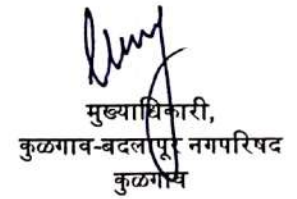 मुख्याधिकारी,
कुळगाव-बदलापूर नगरपरिषद
कुळगाव